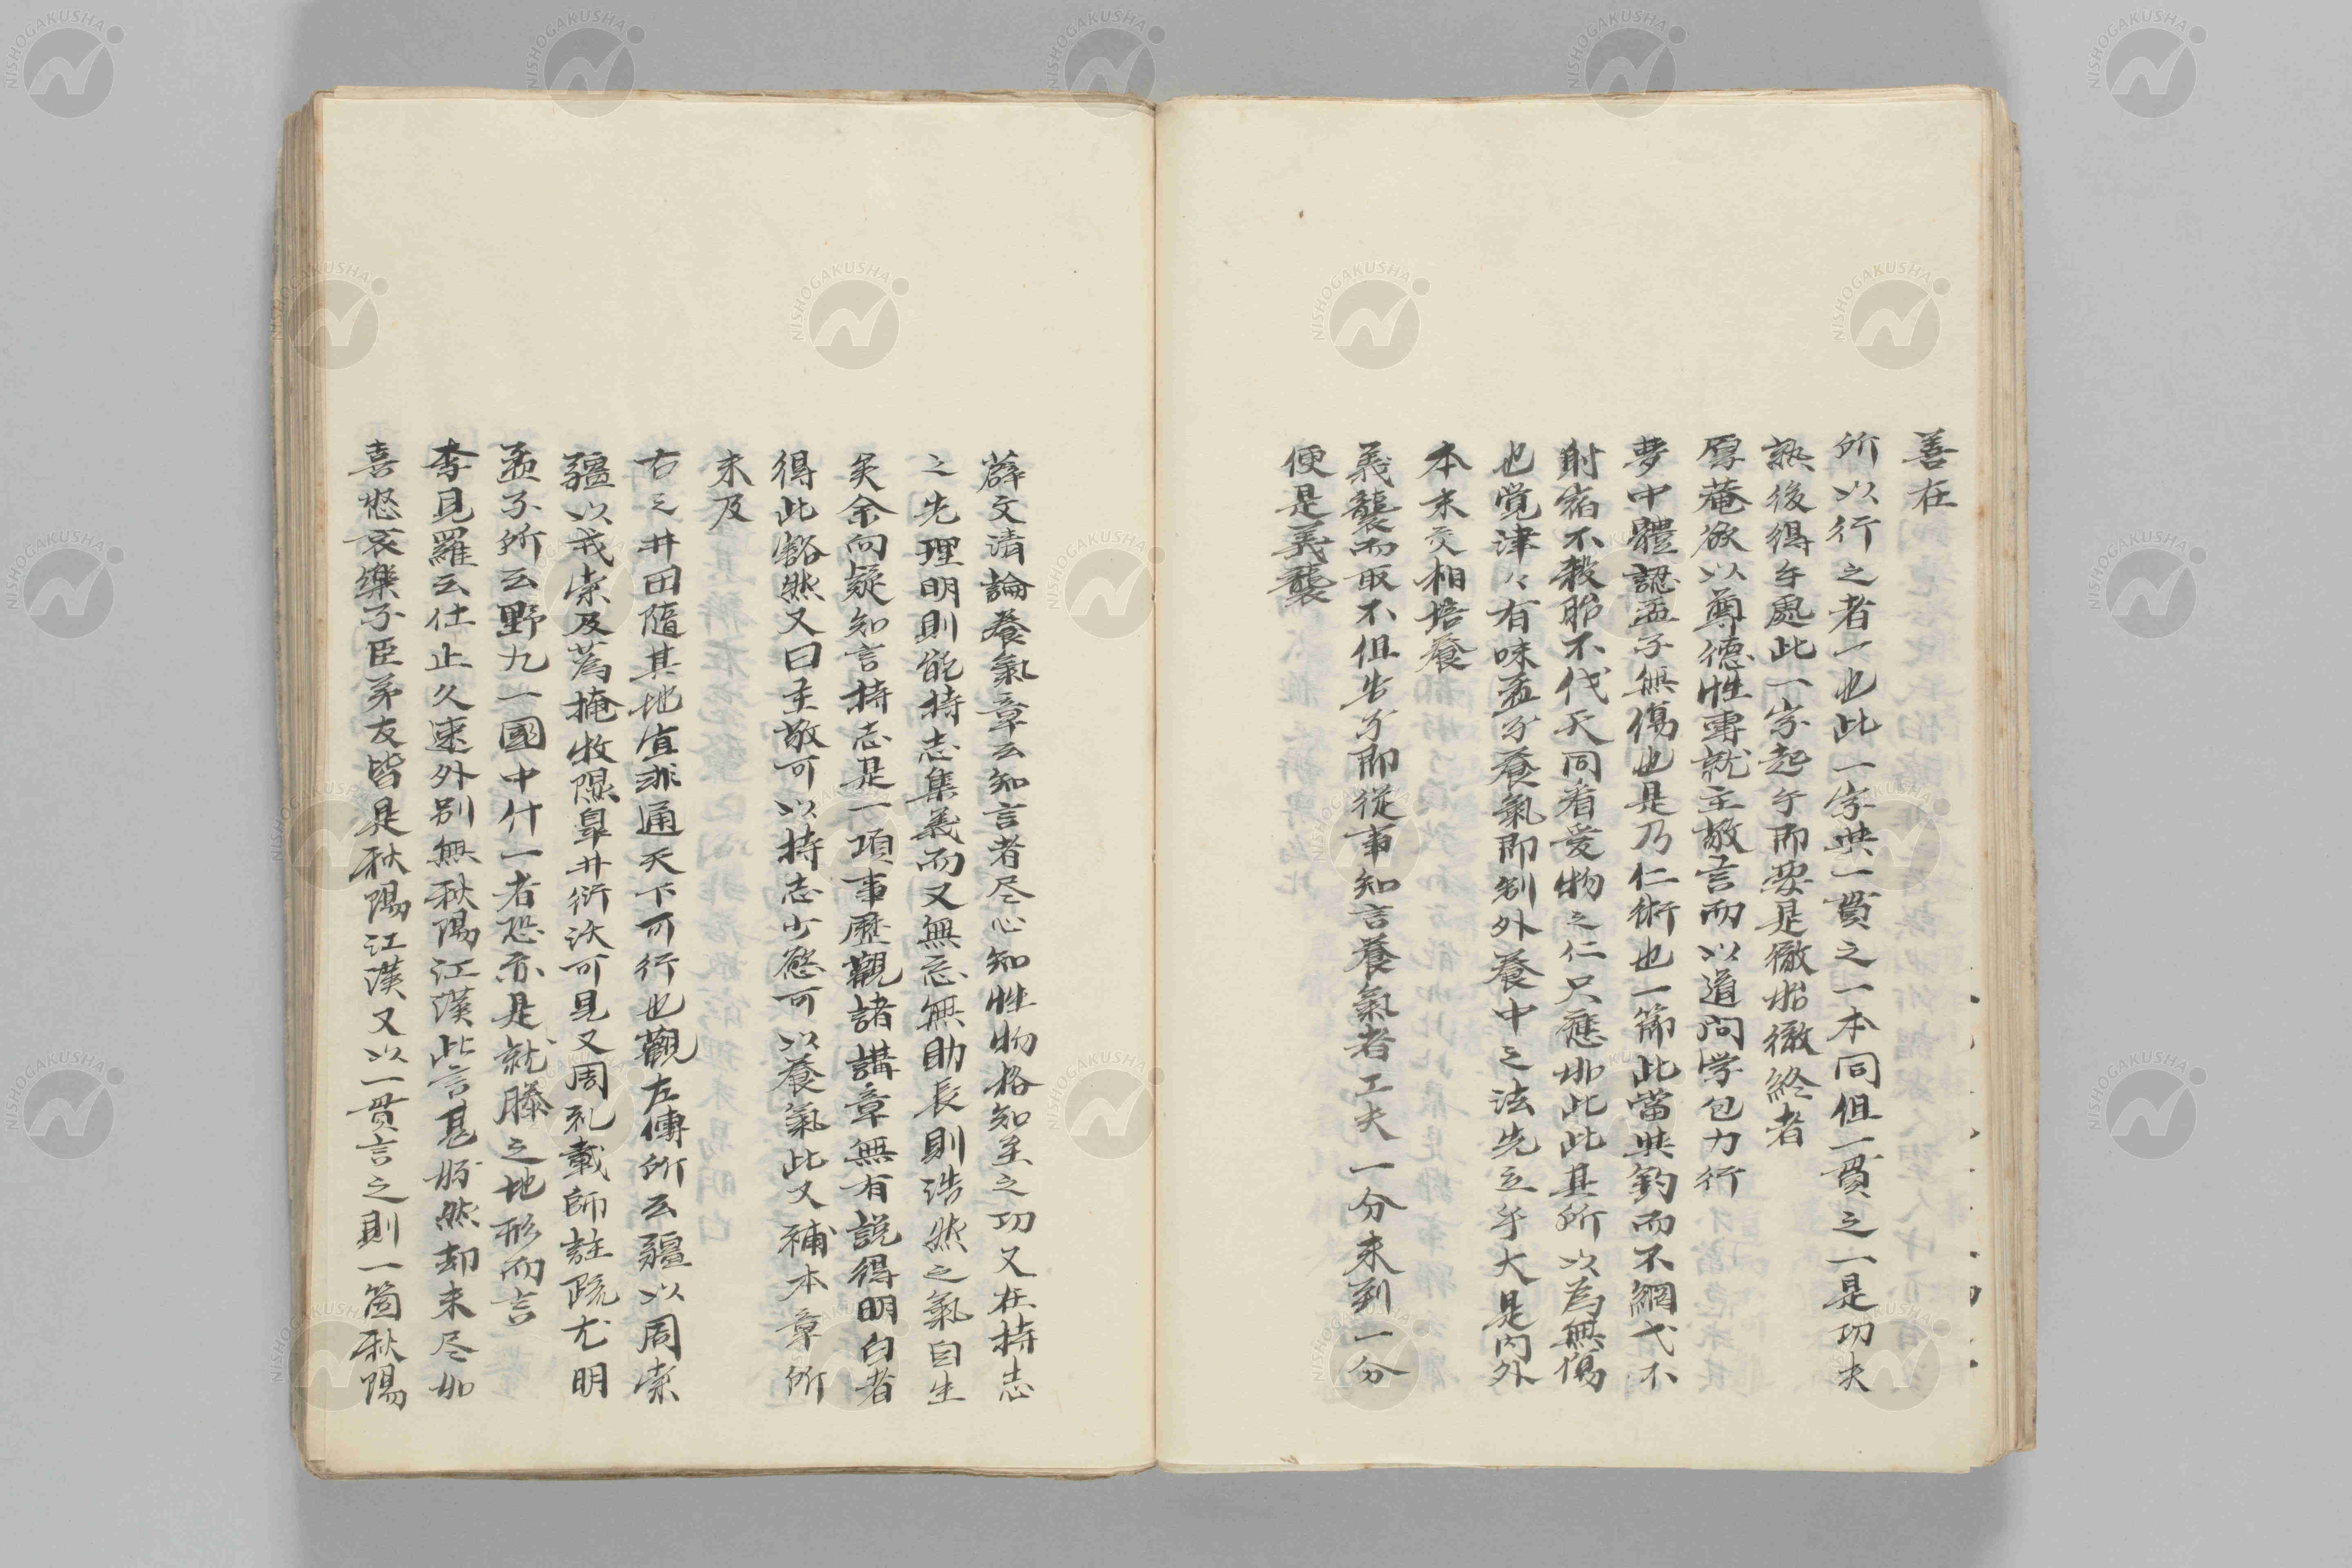 善在
所以行之者一也此一字與一貫之一本同但一貫之一是功夫
熟後得手處此一字起手即要是徹始徹終者
厚菴欲以尊德性専就主敬言而以道問学包力行
夢中體認孟子無傷也是乃仁術也一節此當與釣而不綱弋不
射宿不殺胎不伐夭同看愛物之仁只應如此此其所以為無傷
也覚津々有味孟子養氣即制外養中之法先立乎大是内外
本末交相培養
義襲而取不但告子即從事知言養氣者工夫一分未到一分
便是義襲
薛文清論養氣章云知言者尽心知性物格知至之功又在持志
之先理明則能持志集義而又無忘無助長則浩然之氣自生
矣余向疑知言持志是一項事歷觀諸講章無有説得明白者
得此豁然又曰主敬可以持志少慾可以養氣此又補本章所
未及
古之井田隨其地宜非通天下可行也觀左傳所云疆以周索
疆以戎索及蒍掩牧隰皐井衍沃可見又周礼載師註疏尤明
孟子所云野九一國中什一者恐亦是就滕之地形而言
李見羅云仕止久速外別無秋陽江漢此言甚好然却未尽如
喜怒哀樂子臣弟友皆是秋陽江漢又以一貫言之則一箇秋陽
NISHOGAKUSHA